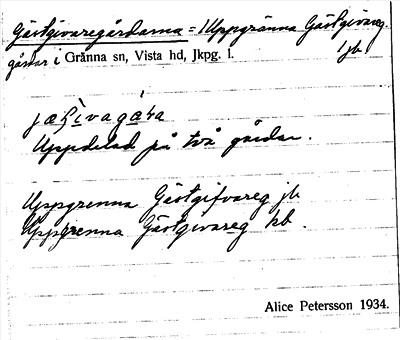 Gästgivaregårdarna = 1 Uppgränna Gästgivareg.
gårdar i Gränna sn, Vista hd, Jkpg. l. 1 jb
Uppdelad på två gårdar.
Uppgrenna Gästgifvareg jb
Uppgrenna Gästgivareg kb.
Alice Petersson 1934.